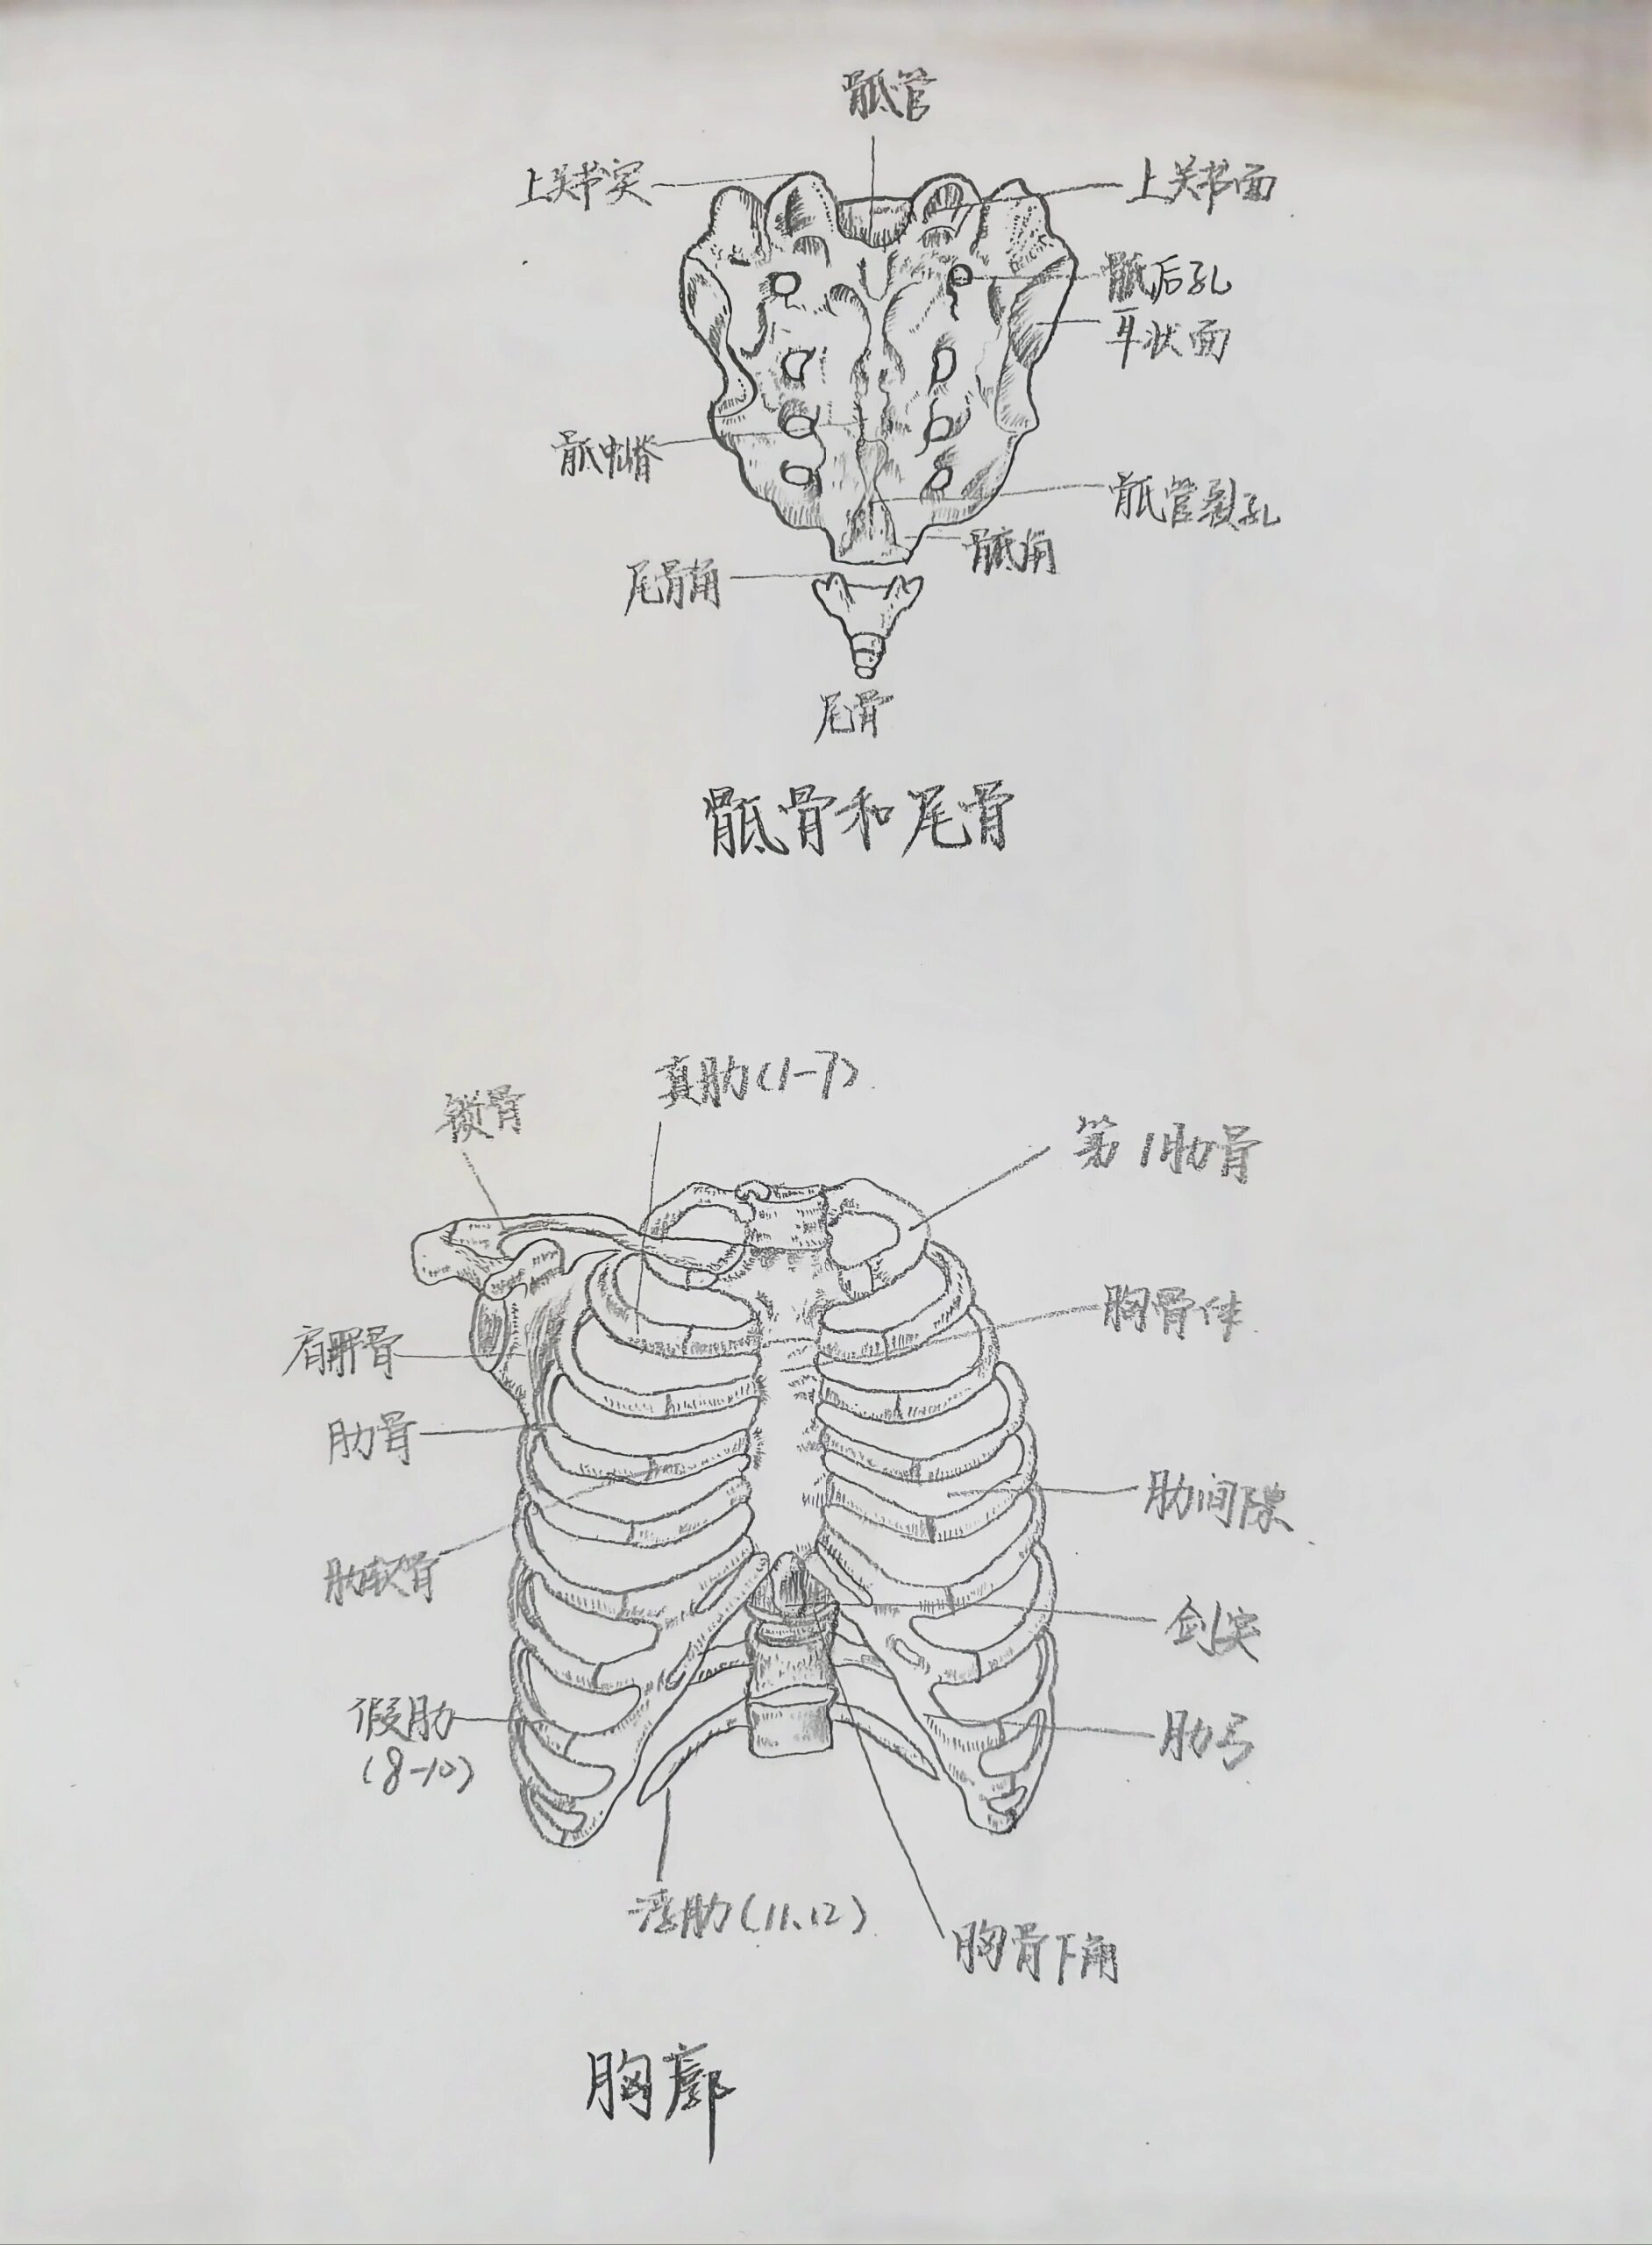 骶管
上关节突
上关节面
骶后孔
耳状面
骶中嵴
骶管裂孔
骶角
尾骨角
尾骨
骶骨和尾骨
真肋(1-7)
锁骨
第1肋骨
胸骨体
肩胛骨
肋骨
肋间隙
肋软骨
剑突
假肋
(8-10)
肋弓
浮肋(11、12)
胸骨下角
胸廓